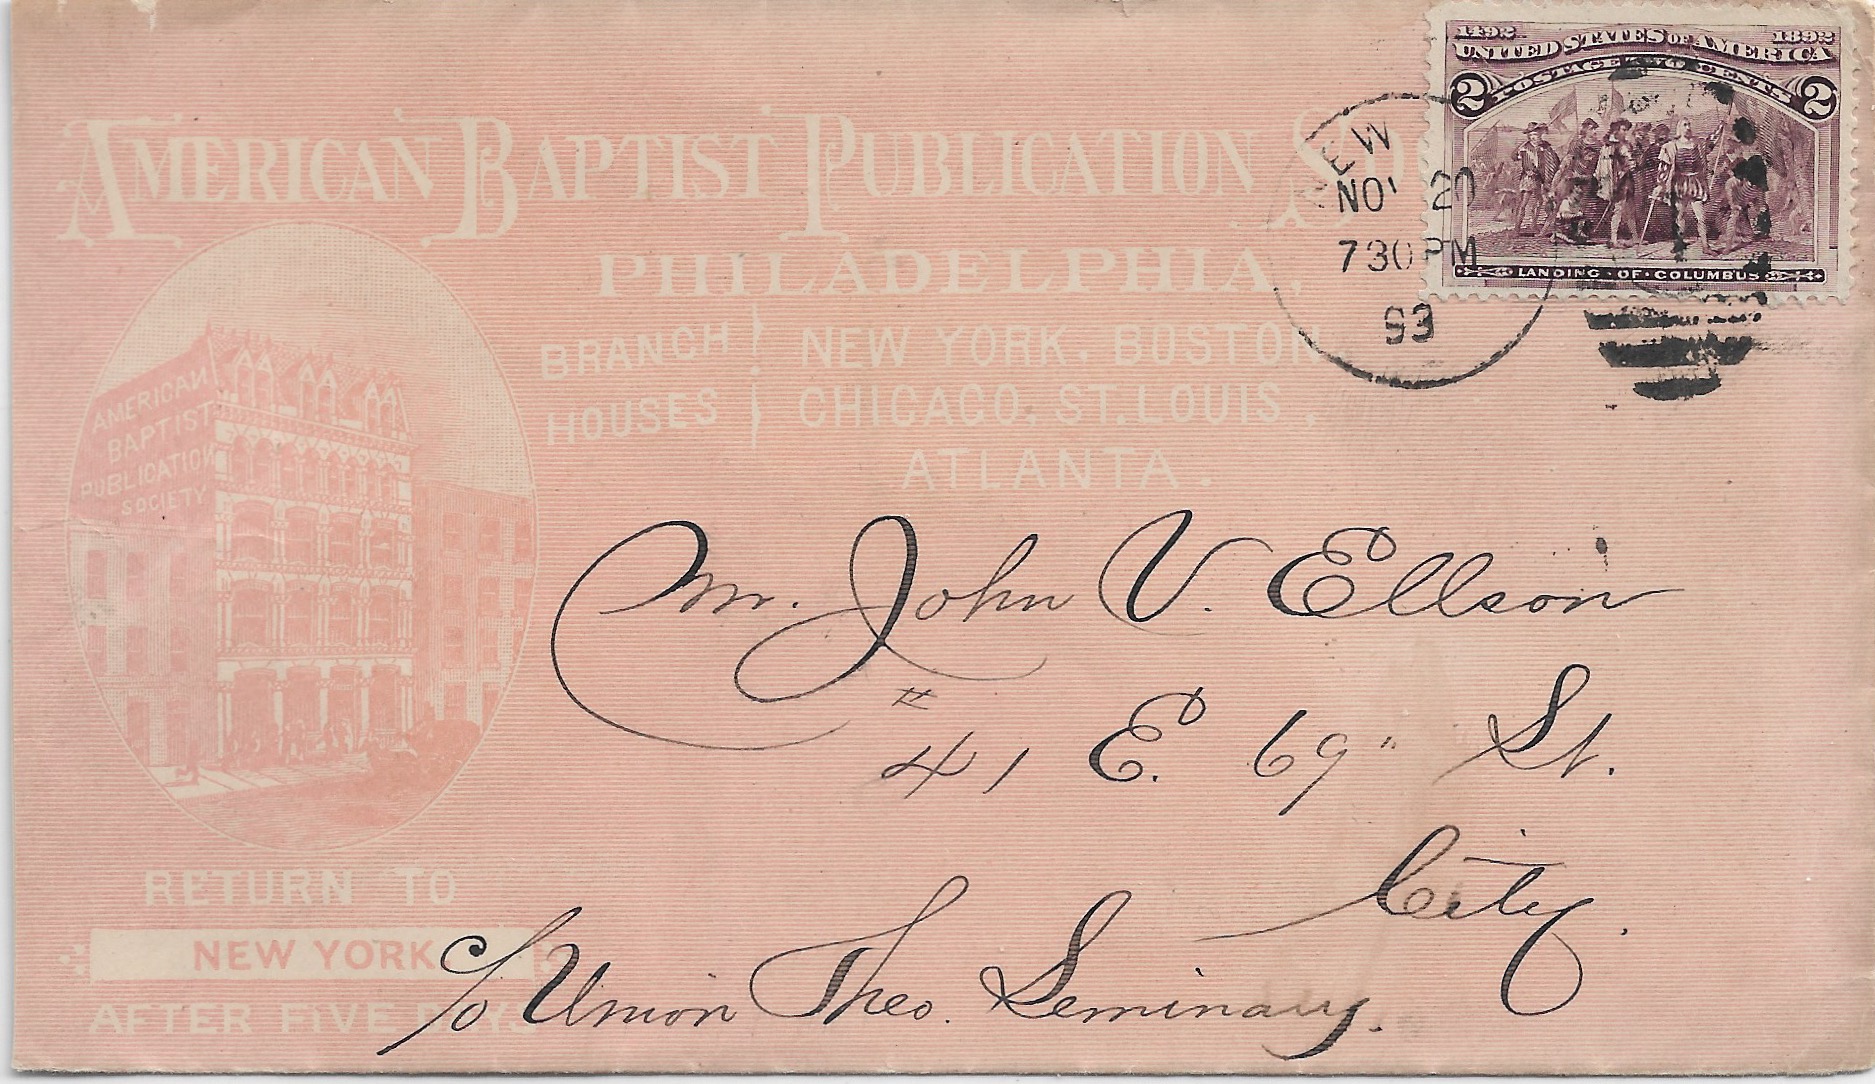 AMERICAN BAPTIST PUBLICATION
PHILADELPHIA,
BRANCH HOUSES
NEW YORK, BOSTON
CHICAGO, ST. LOUIS,
ATLANTA.
1492 1892
UNITED STATES OF AMERICA
POSTAGE TWO CENTS
2 2
LANDING · OF · COLUMBUS
NEW
NOV 20
730 PM
93
AMERICAN
BAPTIST
PUBLICATION
SOCIETY
Mr. John V. Ellson
# 41 E. 69" St.
City.
c/o Union Theo. Seminary.
RETURN TO
NEW YORK.
AFTER FIVE DAYS.